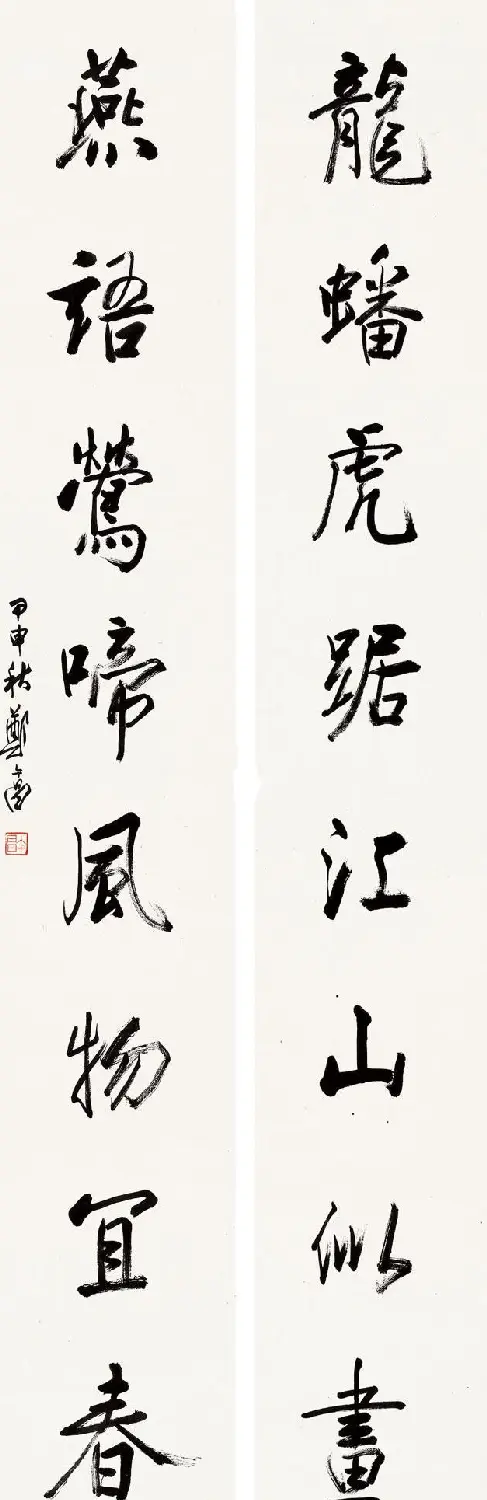 龍蟠虎踞江山似畫
燕語鶯啼風物宜春
甲申秋鄭